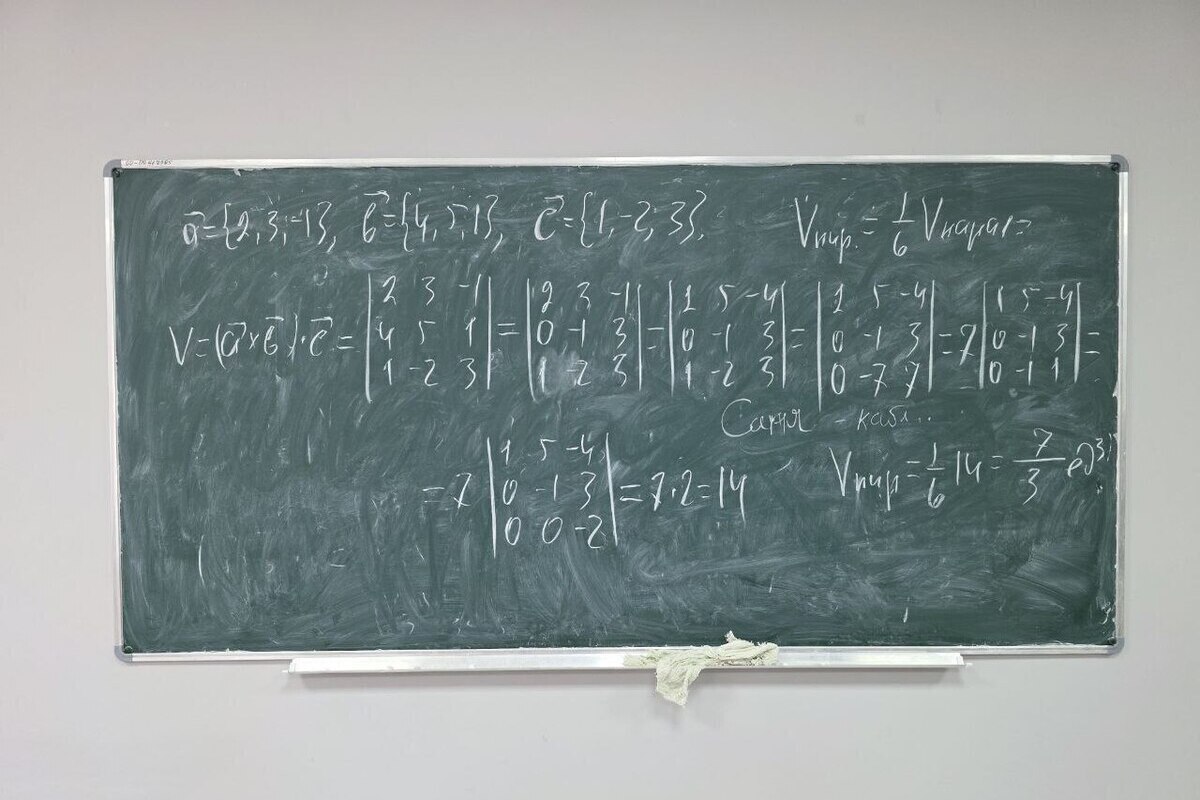 a⃗={2, 3; -1}, в⃗={4, 5, 1}, c⃗={1, -2; 3}. Vпир. = 1/6 Vпарал=
V=(a⃗×в⃗)·c⃗ = |2 3 -1; 4 5 1; 1 -2 3| = |2 3 -1; 0 -1 3; 1 -2 3| = |1 5 -4; 0 -1 3; 1 -2 3| = |1 5 -4; 0 -1 3; 0 -7 7| = 7 |1 5 -4; 0 -1 3; 0 -1 1| =
= 7 |1 5 -4; 0 -1 3; 0 0 -2| = 7·2=14 Vпир = 1/6 14 = 7/3 ед³